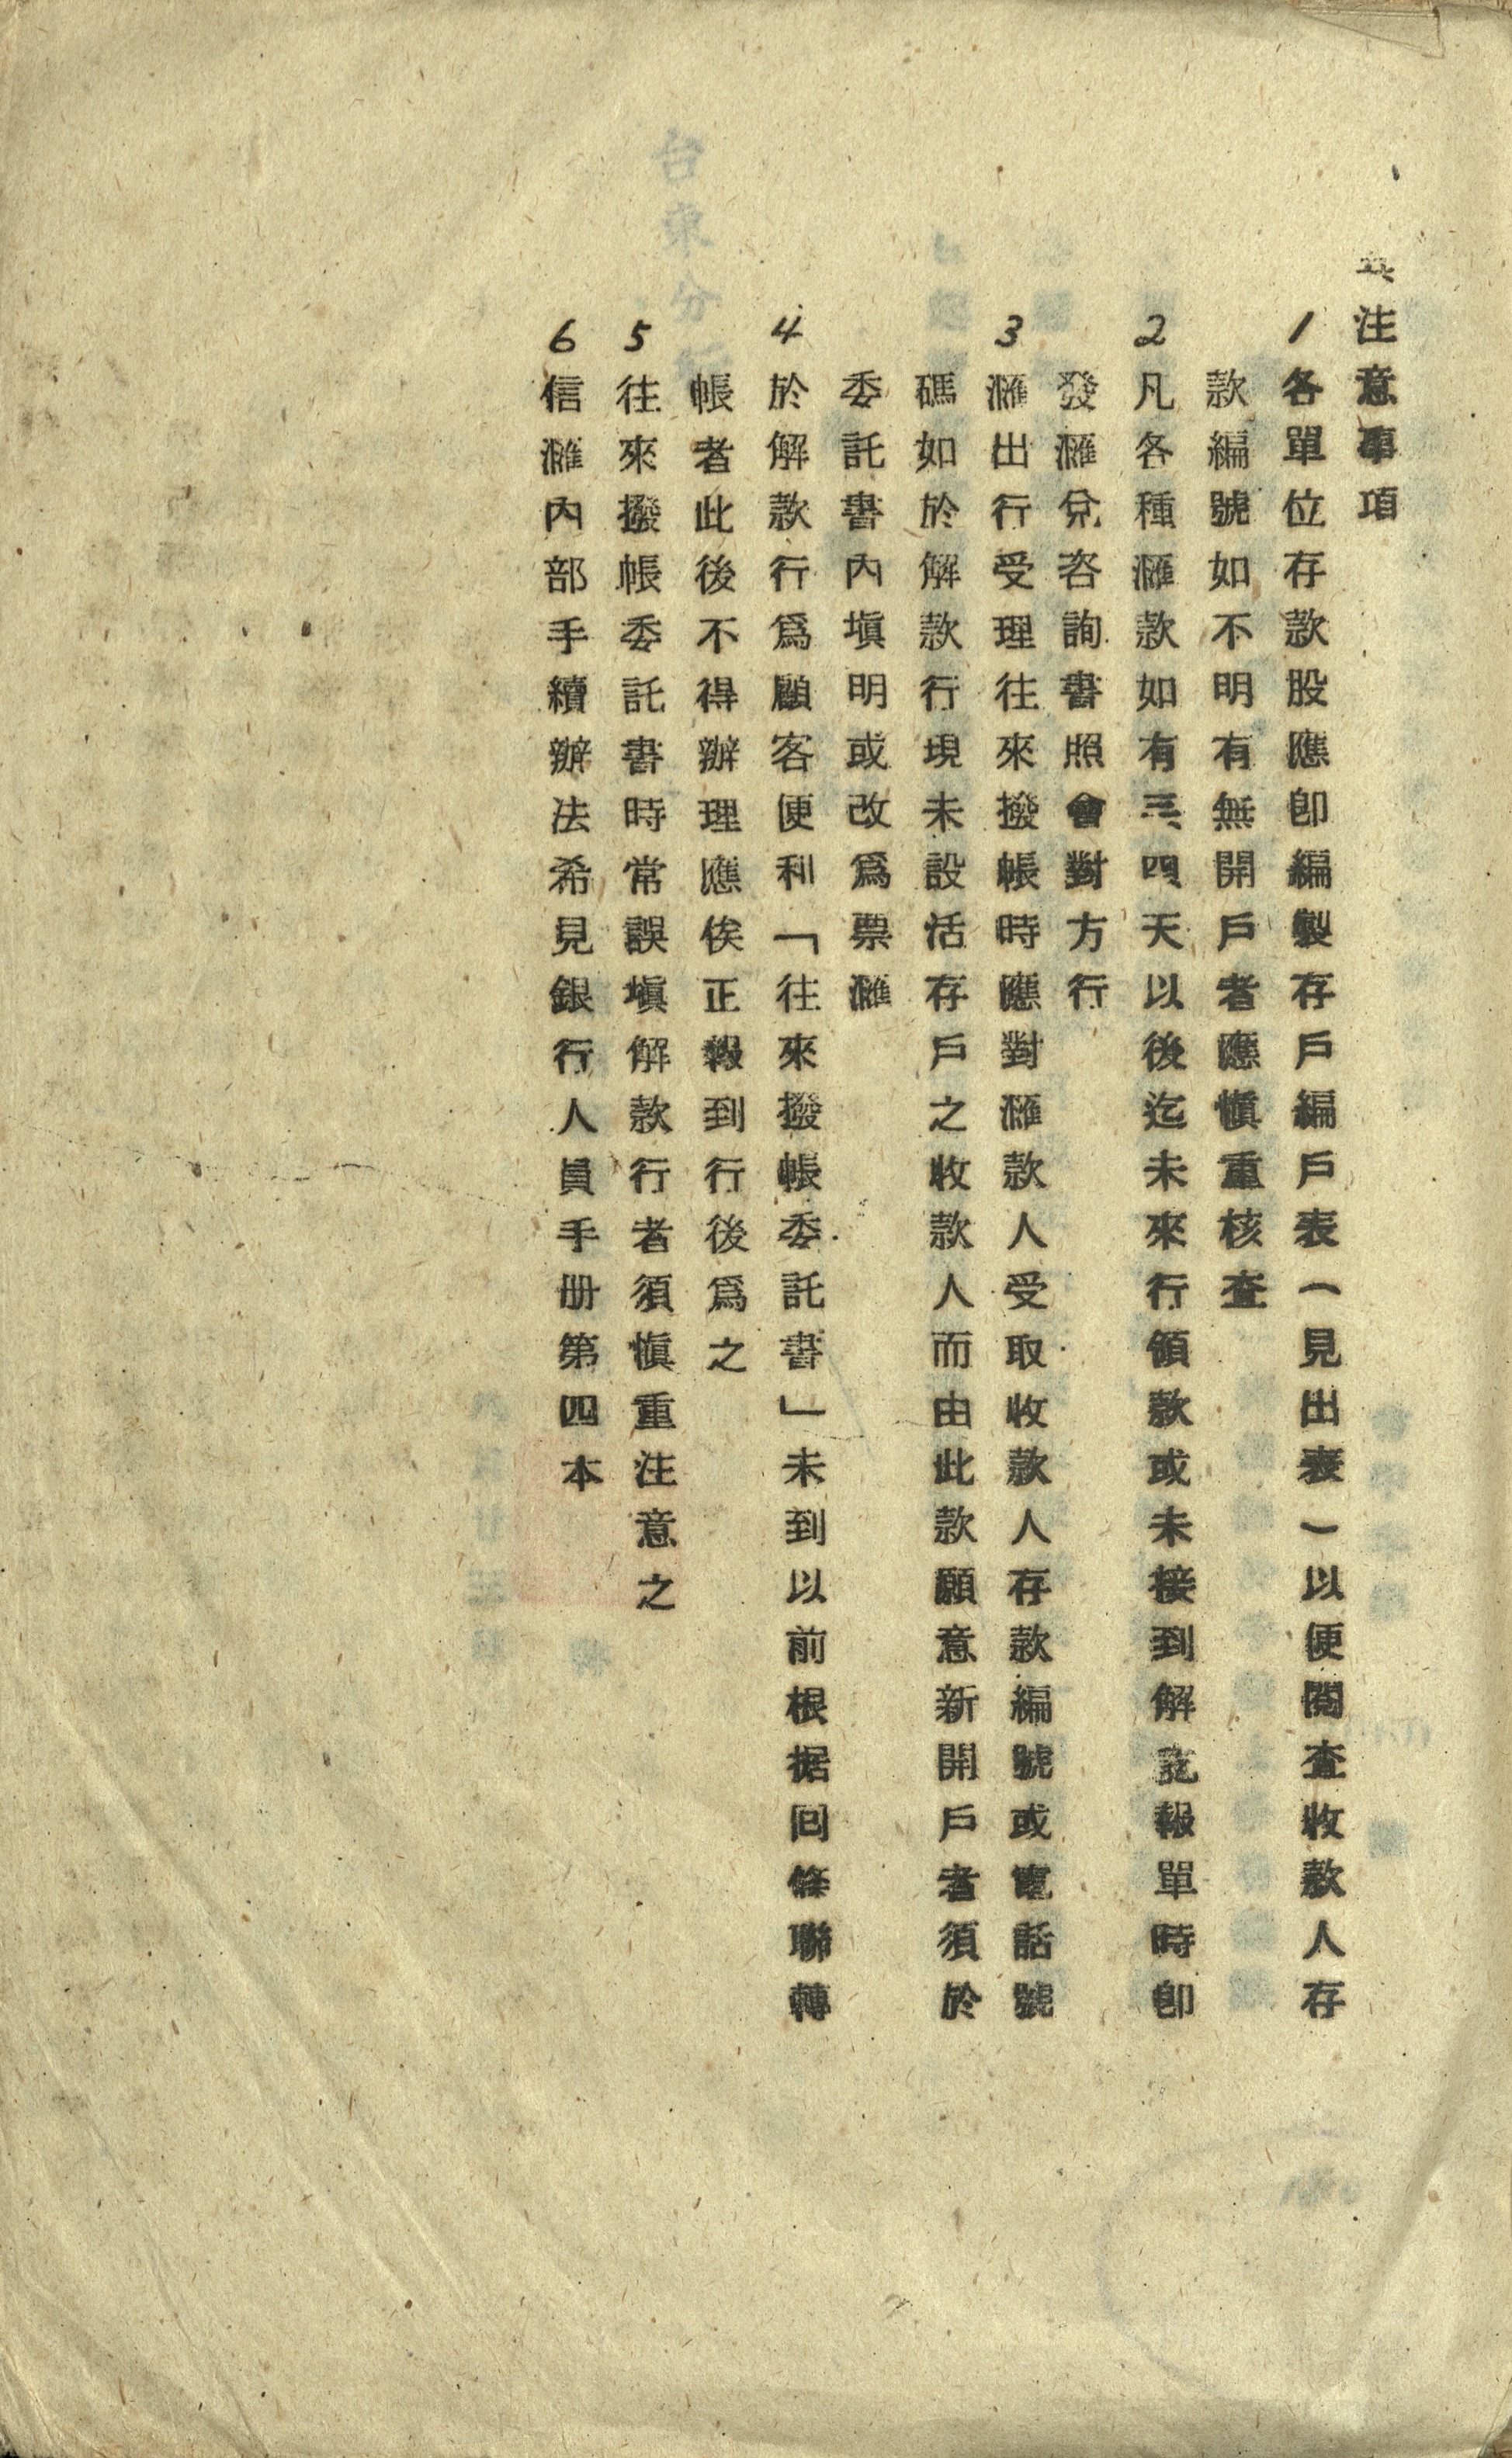 注意事項
1各單位存款股應卽編製存戶編戶表(見出表)以便閱查收款人存
款編號如不明有無開戶者應愼重核查
2凡各種滙款如有三、四、天以後迄未來行領款或未接到解訖報單時卽
發滙兌咨詢書照會對方行
3滙出行受理往來撥帳時應對滙款人受取收款人存款編號或電話號
碼如於解款行現未設活存戶之收款人而由此款願意新開戶者須於
委託書內塡明或改爲票滙
4於解款行爲顧客便利「往來撥帳委託書」未到以前根据回條聯轉
帳者此後不得辦理應俟正報到行後爲之
5往來撥帳委託書時常誤塡解款行者須愼重注意之
6信滙內部手續辦法希見銀行人員手册第四本
台東分行